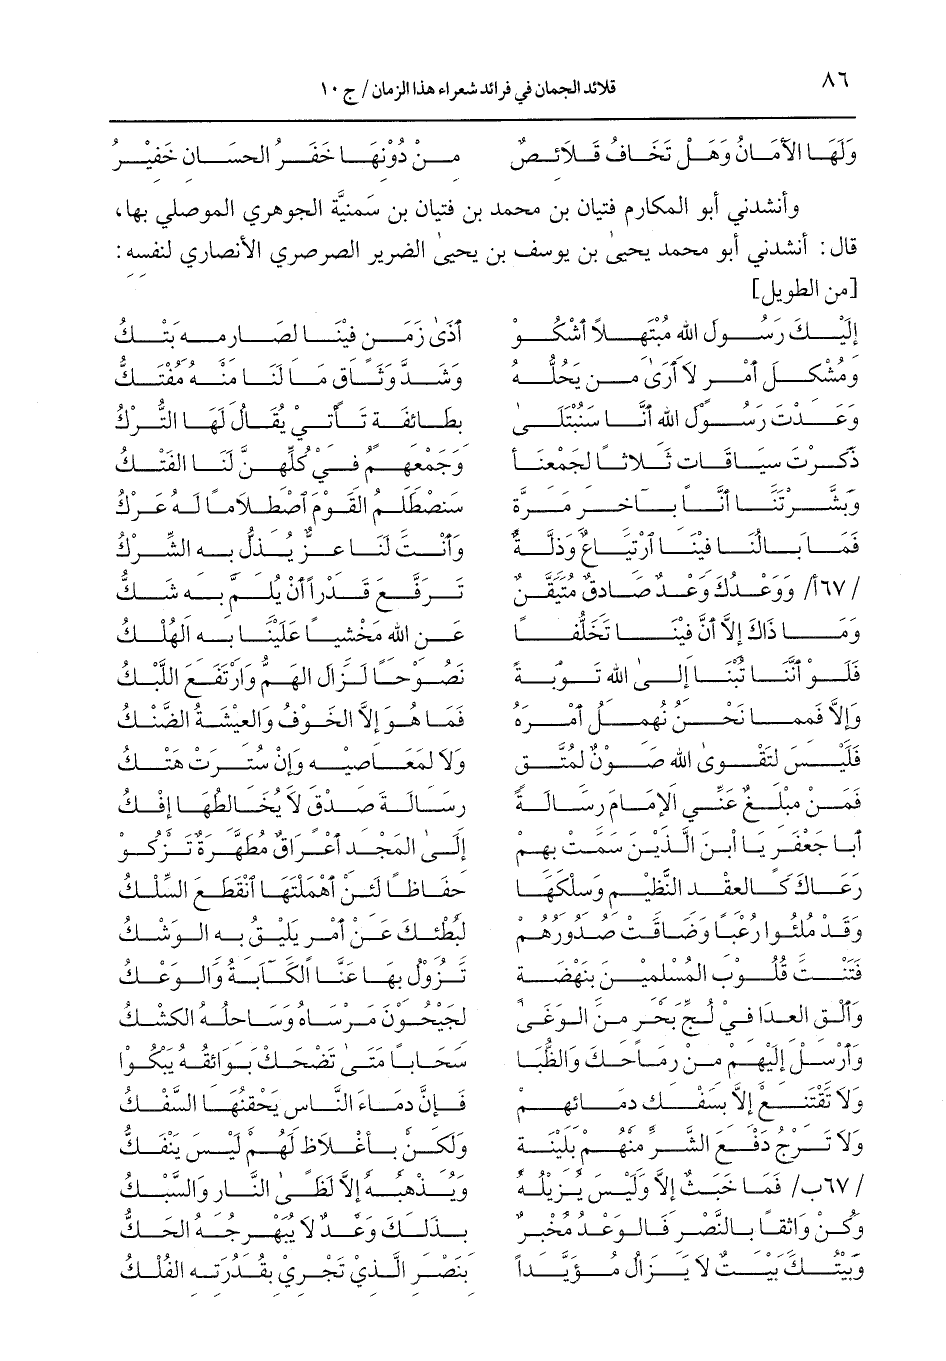 ٨٦ قلائد الجمان في فرائد شعراء هذا الزمان / ج ١٠
وَلَهَا الأَمَانُ وَهَلْ تَخَافُ قَلَائِصٌ مِنْ دُوْنِهَا خَفَرُ الحِسَانِ خَفِيْرُ
وأنشدني أبو المكارم فتيان بن محمد بن فتيان بن سَمنيَّة الجوهري الموصلي بها،
قال: أنشدني أبو محمد يحيىٰ بن يوسف بن يحيىٰ الضرير الصرصري الأنصاري لنفسه:
[من الطويل]
إِلَيْكَ رَسُولَ اللهِ مُبْتَهِلاً أَشْكُو أَذَىٰ زَمَنٍ فِيْنَا لِصَارِمِهِ بَتْكُ
وَمُشْكِلَ أَمْرٍ لاَ أَرَىٰ مَنْ يَحُلُّهُ وَشَدَّ وِثَاقٍ مَا لَنَا مِنْهُ مُفْتَكُّ
وَعَدْتَ رَسُوْلَ اللهِ أَنَّا سَنُبْتَلَىٰ بِطَائِفَةٍ تَأْتِيْ يُقَالُ لَهَا التُّرْكُ
ذَكَرْتَ سِيَاقَاتٍ ثَلَاثاً لِجَمْعِنَا وَجَمْعِهِمُ فِيْ كُلِّهِنَّ لَنَا الفَتْكُ
وَبَشَّرْتَنَا أَنَّا بِآخِرِ مَرَّةٍ سَنَصْطَلِمُ القَوْمَ اصْطِلَاماً لَهُ عَرْكُ
فَمَا بَالُنَا فِيْنَا ارْتِيَاعٌ وَذِلَّةٌ وَأَنْتَ لَنَا عِزٌّ يُذَلُّ بِهِ الشِّرْكُ
/٦٧أ/ وَوَعْدُكَ وَعْدٌ صَادِقٌ مُتَيَقَّنٌ تَرَفَّعَ قَدْراً أَنْ يُلِمَّ بِهِ شَكُّ
وَمَا ذَاكَ إِلاَّ أَنَّ فِيْنَا تَخَلُّفاً عَنِ اللهِ مَخْشِيّاً عَلَيْنَا بِهِ الهُلْكُ
فَلَوْ أَنَّنَا تُبْنَا إِلَىٰ اللهِ تَوْبَةً نَصُوْحاً لَزَالَ الهَمُّ وَارْتَفَعَ اللَّبْكُ
وَإِلاَّ فَمَهْمَا نَحْنُ نُهْمِلُ أَمْرَهُ فَمَا هُوَ إِلاَّ الخَوْفُ وَالعِيْشَةُ الضَّنْكُ
فَلَيْسَ لِتَقْوَىٰ اللهِ صَوْنٌ لِمُتَّقٍ وَلاَ لِمَعَاصِيْهِ وَإِنْ سُتِرَتْ هَتْكُ
فَمَنْ مُبْلِغٌ عَنِّي الإِمَامَ رِسَالَةً رِسَالَةَ صِدْقٍ لاَ يُخَالِطُهَا إِفْكُ
أَبَا جَعْفَرٍ يَا ابْنَ الَّذِيْنَ سَمَتْ بِهِمْ إِلَىٰ المَجْدِ أَعْرَاقٌ مُطَهَّرَةٌ تَزْكُو
رَعَايَاكَ كَالعِقْدِ النَّظِيْمِ وَسِلْكُهَا حِفَاظاً لَئِنْ أَهْمَلْتَهَا انْقَطَعَ السِّلْكُ
وَقَدْ مُلِئُوا رُعْباً وَضَاقَتْ صُدُوْرُهُمْ لِبُطْئِكَ عَنْ أَمْرٍ يَلِيْقُ بِهِ الوَشْكُ
فَثَبِّتْ قُلُوْبَ المُسْلِمِيْنَ بِنَهْضَةٍ تَزُوْلُ بِهَا عَنَّا الكَآبَةُ وَالوَعْكُ
وَأَلْقِ العِدَا فِيْ لُجِّ بَحْرٍ مِنَ الوَغَىٰ لِجَيْحُوْنَ مَرْسَاهُ وَسَاحِلُهُ الكِشْكُ
وَأَرْسِلْ إِلَيْهِمْ مِنْ رِمَاحِكَ وَالظُّبَا سَحَاباً مَتَىٰ تَضْحَكْ بَوَائِقُهُ يَبْكُوا
وَلاَ تَقْتَنِعْ إِلاَّ بِسَفْكِ دِمَائِهِمْ فَإِنَّ دِمَاءَ النَّاسِ يَحْقِنُهَا السَّفْكُ
وَلاَ تَرْجُ دَفْعَ الشَّرِّ مِنْهُمْ بِلِيْنَةٍ وَلَكِنْ بِأَغْلَاظٍ لَهُمْ لَيْسَ يَنْفَكُّ
/٦٧ب/ فَمَا خَبَثٌ إِلاَّ وَلَيْسَ يُزِيْلُهُ وَيُذْهِبُهُ إِلاَّ لَظَىٰ النَّارِ وَالسَّبْكُ
وَكُنْ وَاثِقاً بِالنَّصْرِ فَالوَعْدُ مُخْبِرٌ بِذَلِكَ وَعْدٌ لاَ يُبَهْرِجُهُ الحَكُّ
وَبَيْتُكَ بَيْتٌ لاَ يَزَالُ مُؤَيَّداً بِنَصْرِ الَّذِيْ تَجْرِي بِقُدْرَتِهِ الفُلْكُ